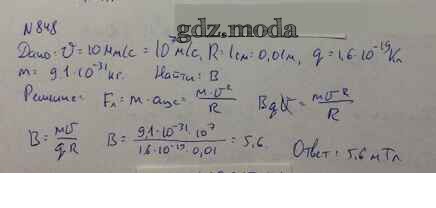 gdz.moda
N 848
Дано: υ = 10 Мм/с = 10⁷ м/с, R = 1см = 0,01м, q = 1,6 · 10⁻¹⁹ Кл
m = 9,1 · 10⁻³¹ кг. Найти: B
Решение: Fл = m · aцс = m · υ² / R Bqυ = mυ² / R
B = mυ / qR B = 9,1 · 10⁻³¹ · 10⁷ / 1,6 · 10⁻¹⁹ · 0,01 = 5,6. Ответ: 5,6 мТл